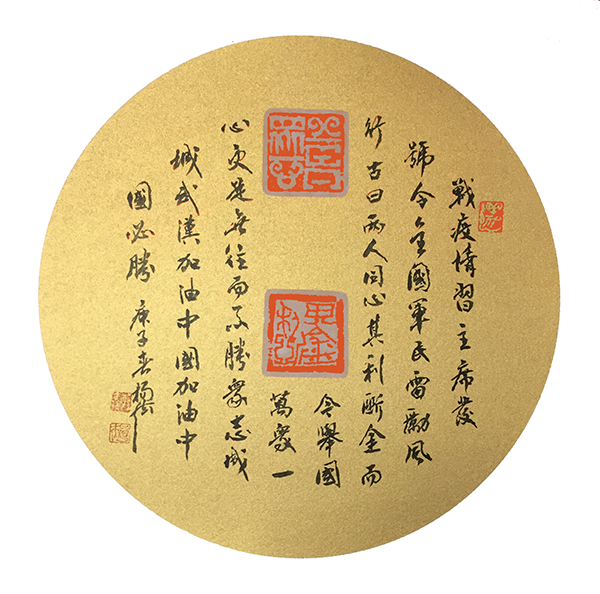 戰疫情習主席發
號令全國軍民雷勵風
行古曰兩人同心其利斷金而
令舉國
萬衆一
心更是無往而不勝衆志成
城武漢加油中國加油中
國必勝 庚子春